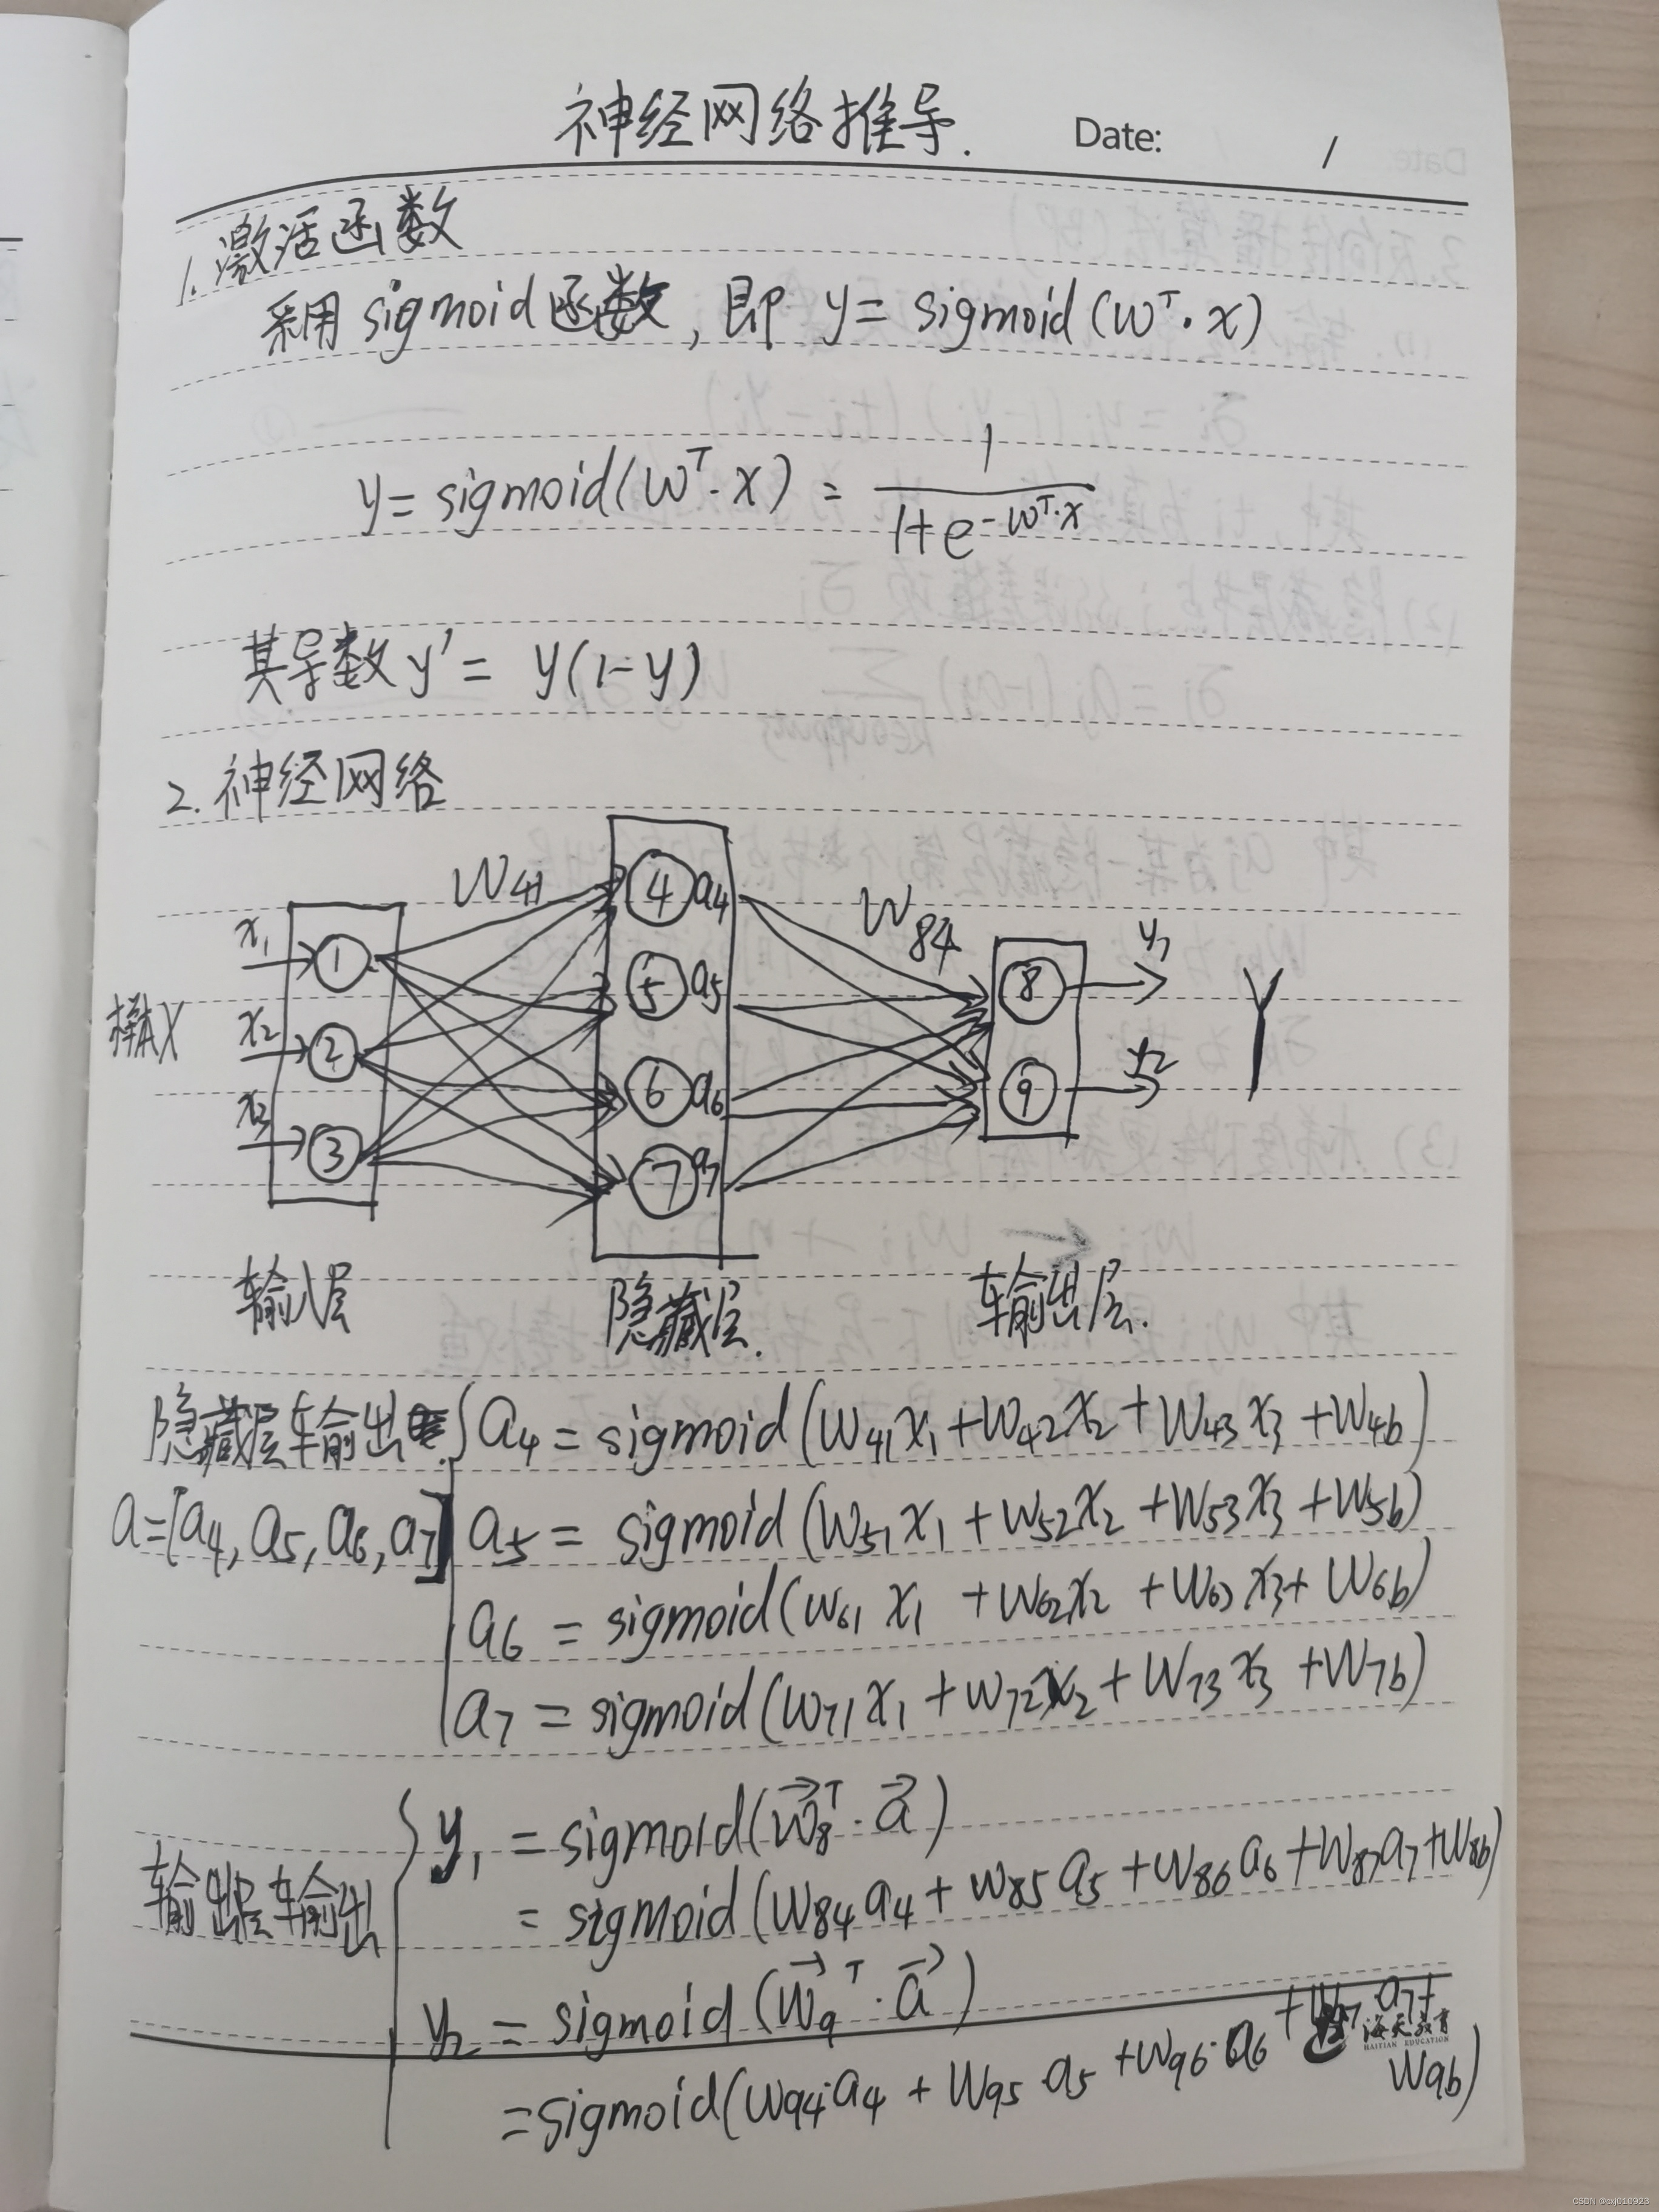 神经网络推导.
Date: /
1.激活函数
采用 sigmoid 函数, 即 y = sigmoid(wᵀ·x)
y = sigmoid(wᵀ·x) = 1 / (1+e^(-wᵀ·x))
其导数 y' = y(1-y)
2.神经网络
w41
w84
样本X
x1
x2
x3
1
2
3
4 a4
5 a5
6 a6
7 a7
8
9
y1
y2
Y
输入层
隐藏层.
输出层.
隐藏层输出
a=[a4, a5, a6, a7]
a4 = sigmoid(w41x1+w42x2+w43x3+w4b)
a5 = sigmoid(w51x1+w52x2+w53x3+w5b)
a6 = sigmoid(w61x1+w62x2+w63x3+w6b)
a7 = sigmoid(w71x1+w72x2+w73x3+w7b)
输出层输出
y1 = sigmoid(w⃗8ᵀ·a⃗)
= sigmoid(w84a4+w85a5+w86a6+w87a7+w8b)
y2 = sigmoid(w⃗9ᵀ·a⃗)
=sigmoid(w94·a4+w95·a5+w96·a6+w97·a7+w9b)
海天教育
HAITIAN EDUCATION
CSDN @cxj010923